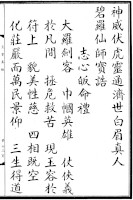 神威伏虎靈通濟世白眉真人
碧羅仙師寶誥
志心皈命禮
大羅劍客 巾幗英雄 仗俠義
於凡間 拯危救苦 現玉容於
符上 貌美性慈 四相既空
化莊嚴而萬民景仰 三生得道